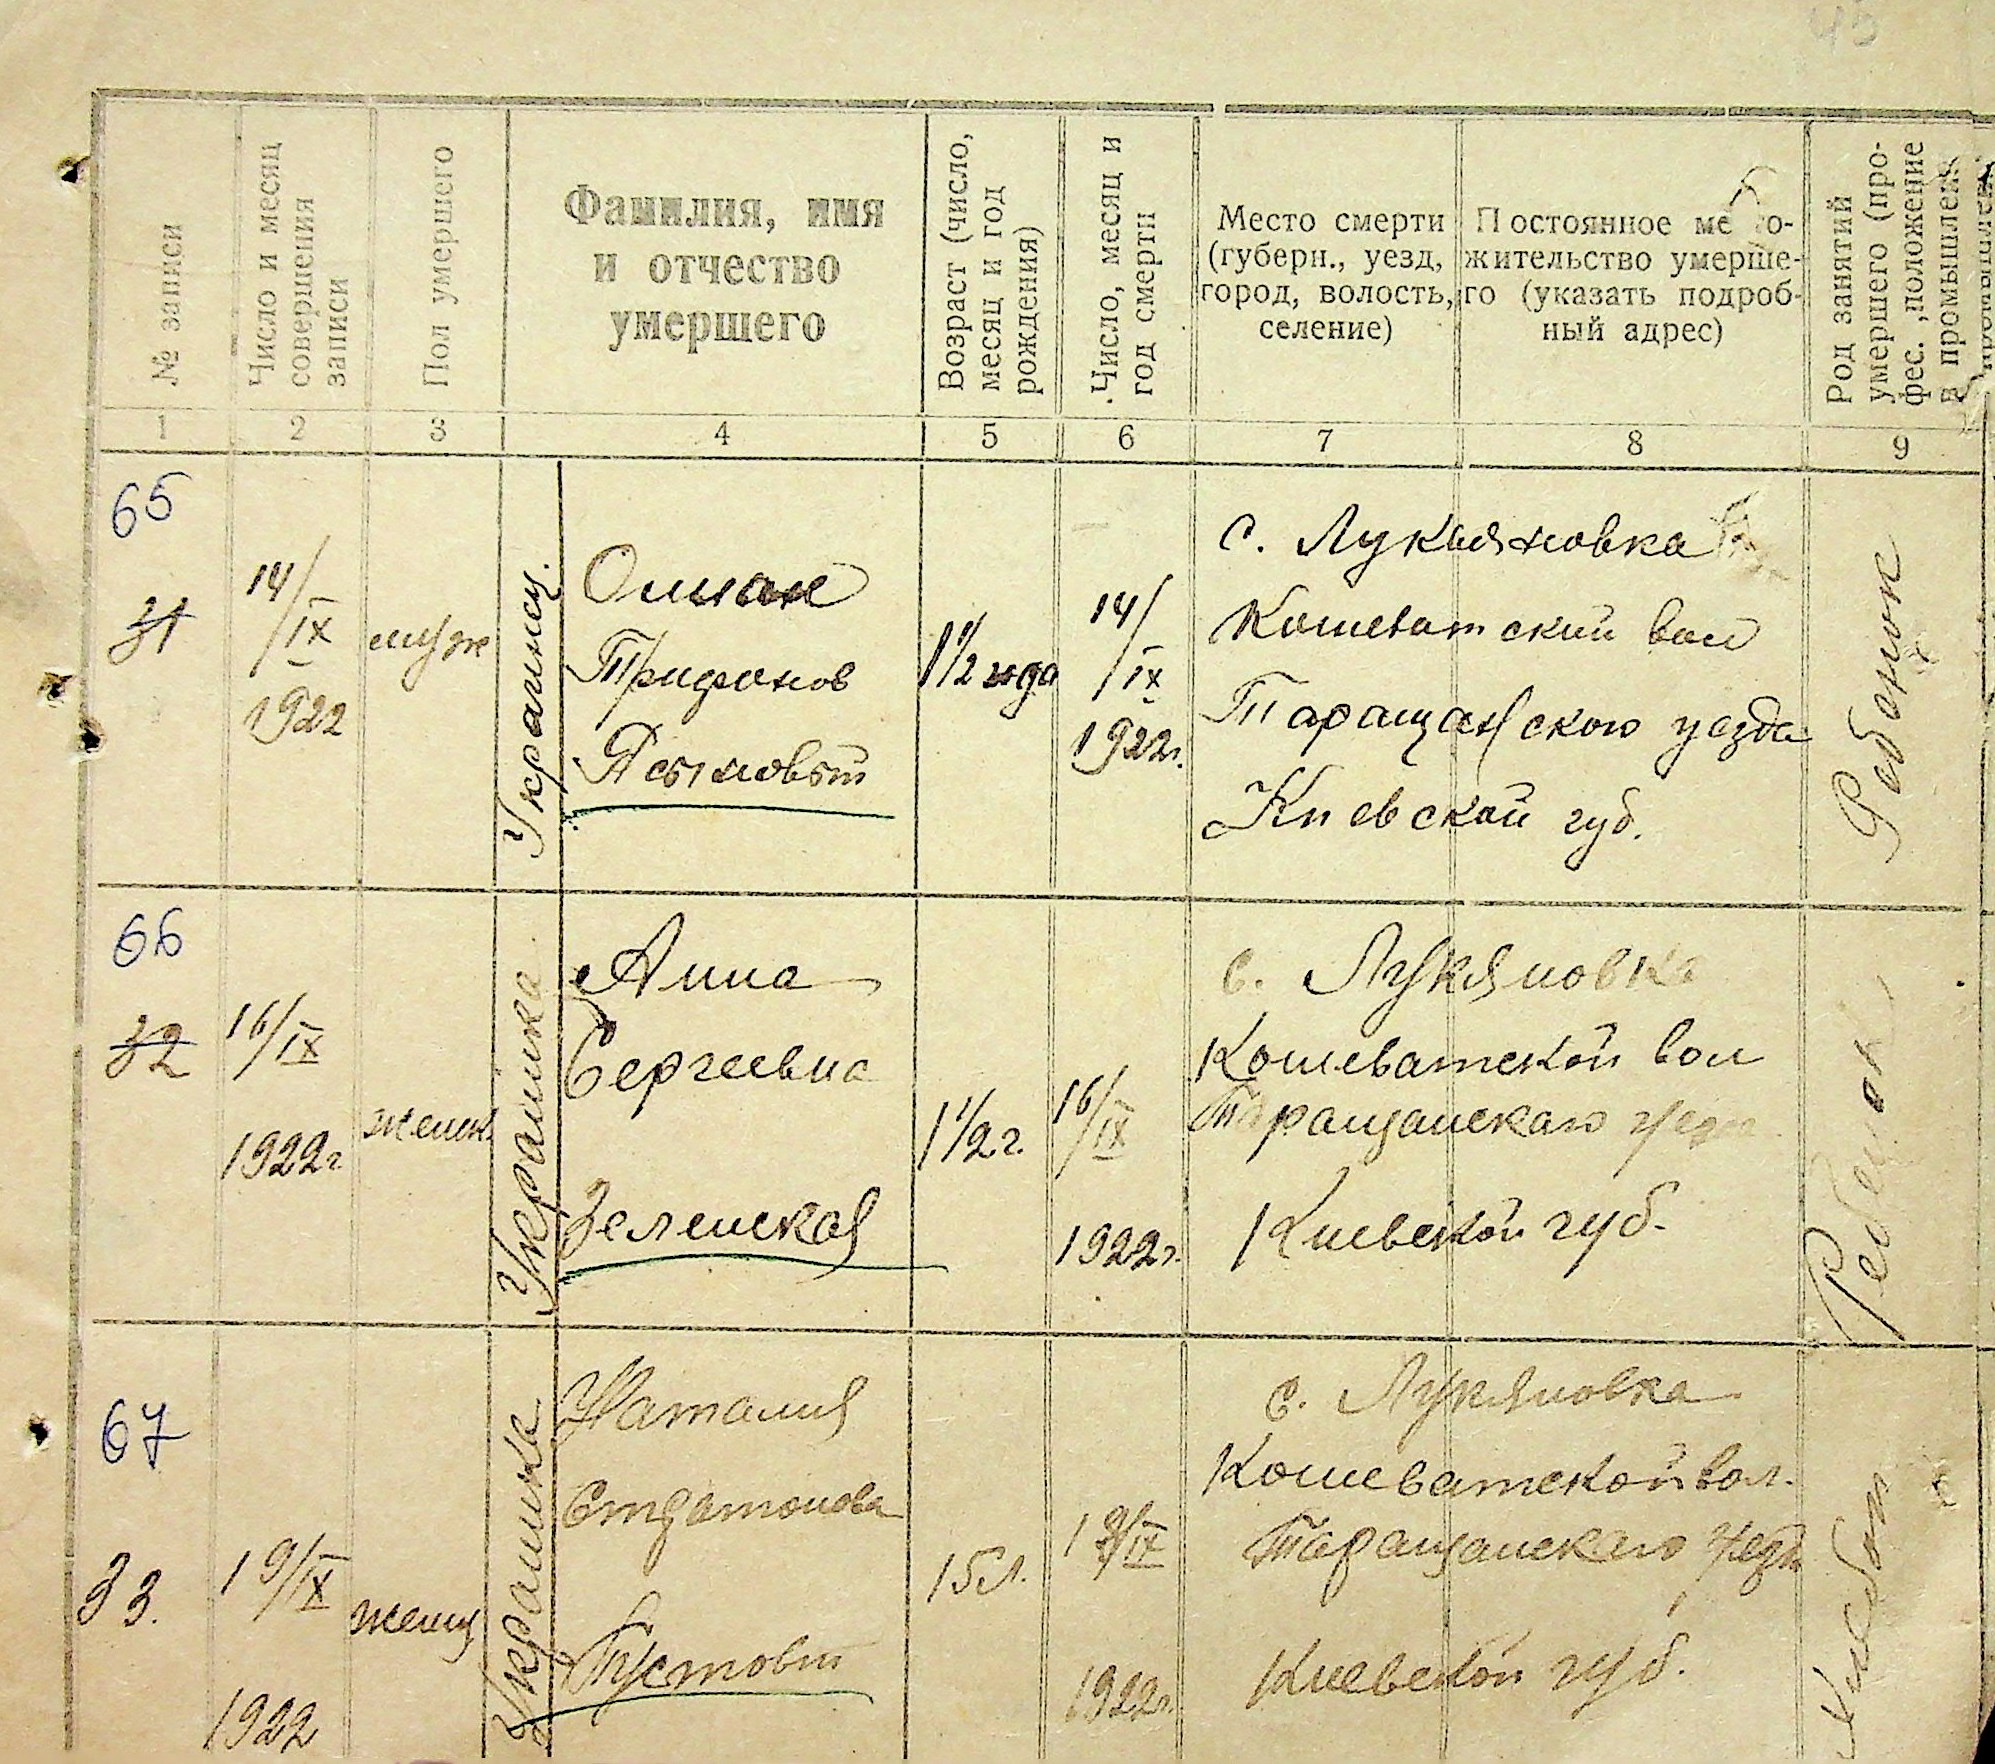 45
№ записи
Число и месяц
совершения
записи
Пол умершего
Фамилия, имя
и отчество
умершего
Возраст (число,
месяц и год
рождения)
Число, месяц и
год смерти
Место смерти
(губерн., уезд,
город, волость,
селение)
Постоянное ме то-
жительство умерше-
го (указать подроб-
ный адрес)
Род занятий
умершего (про-
фес. ,положение
в промышлен.
1 2 3 4 5 6 7 8 9
65
31
14/IX
1922
муж
Украинец.
Трифонов
1 1/2 года
14/IX
1922г.
с. Лукьяновка
Кошеватский вол
Таращанского уезда
Киевской губ.
Ребенок
66
32
16/IX
1922г
женск.
Украинка
Анна
Сергеевна
Зеленская
1 1/2 г.
16/IX
1922г.
с. Лукяновка
Кошеватской вол
Таращанскаго уезда
Киевской губ.
Ребенок
67
33.
19/IX
1922
женщ
Украинка
Наталия
Стратонова
Пустовит
15л.
19/IX
1922г.
с. Лукяновка
Кошеватской вол.
Таращанскаго уезда
Киевской губ.